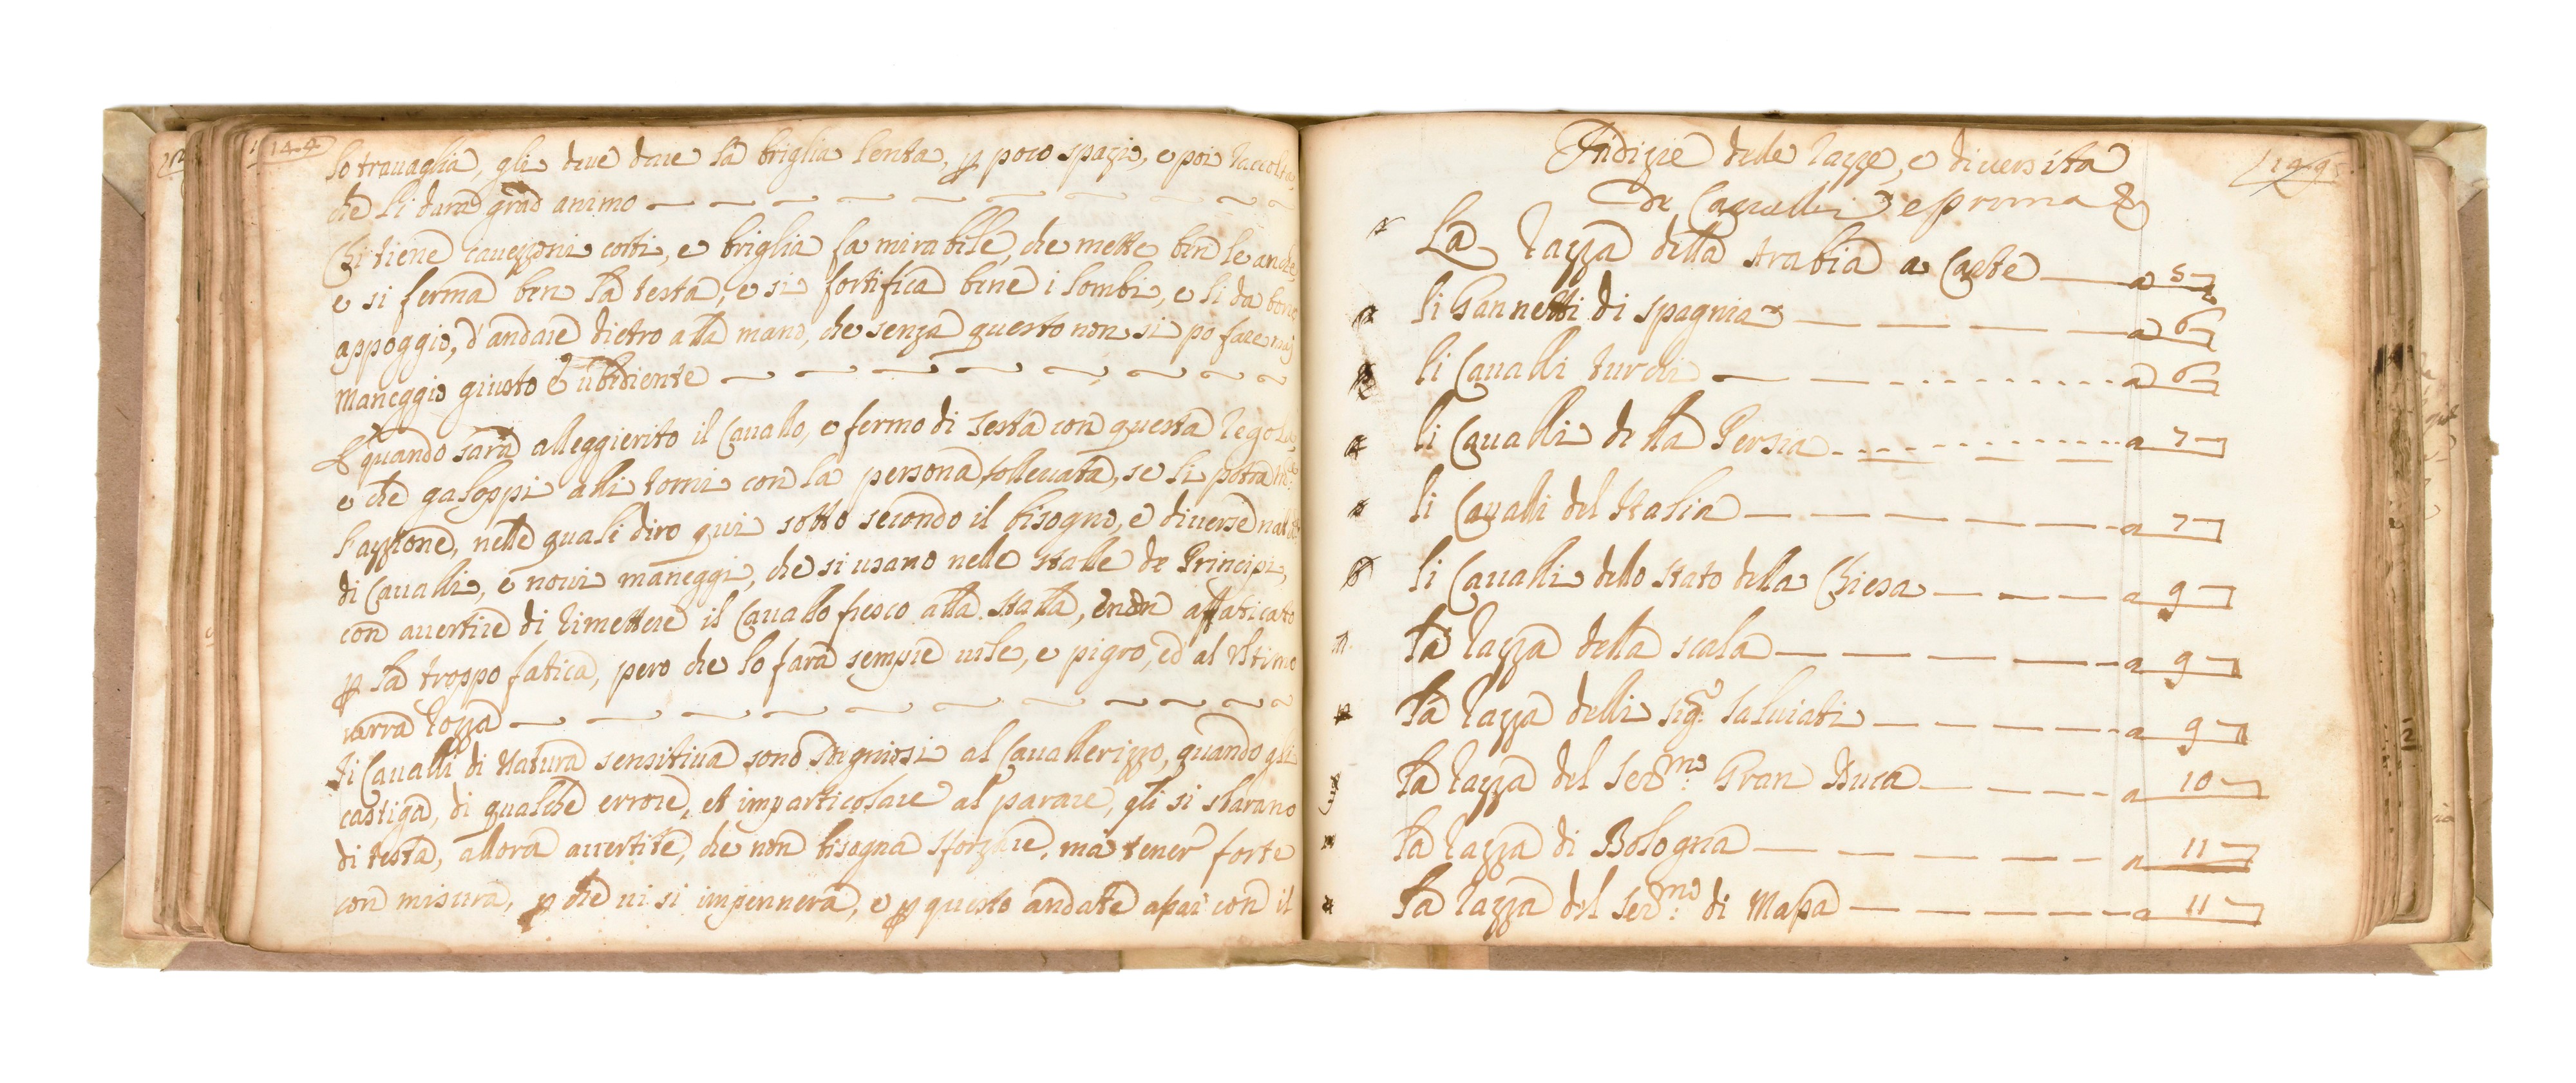 144
lo travaglia, gli deve dare la briglia lenta, p poco spazio, e poi raccolta,
che li darà grād animo
Chi tiene cavezzoni corti, e briglia fa mirabile, che mette ben le anche
e si ferma ben la testa, e si fortifica bene i lombi, e li da bono
appoggio, d'andare dietro alla mano, che senza questo non si po fare mai
maneggio giusto e ubidiente
E quando sarà alleggierito il Cavallo, e fermo di testa con questa regola,
e che galoppi alli torni con la persona sollevata, se li potrà
l'azzione, nelle quali diro qui sotto secondo il bisogno, e diverse
di Cavalli, e novi maneggi, che si usano nelle stalle de Principi,
con avertire di rimettere il Cavallo fresco alla stalla, e non affaticato
p la troppo fatica, pero che lo farà sempre vile, e pigro, ed al ultimo
rozza
li Cavalli di Natura sensitiva sono sdegniosi al Cavallerizzo, quando gli
castiga, di qualche errore, et imparticolare al parare, gli si sbarano
di testa, allora avertite, che non bisogna sforzare, ma tener forte
con misura, p che vi si impennerà, e p questo andate apai con il
Indizie delle razze, e diversita
De Cavalli e prima
La razza della Arabia a Carte a 5
li Gannetti di spagnia a 6
li Cavalli turchi a 6
li Cavalli della Persia a 7
li Cavalli del Italia a 7
li Cavalli dello stato della Chiesa a 9
la razza della scala a 9
la razza delli sig.ri salviati a 9
la razza del ser.mo Gran Duca a 10
la razza di Bologna a 11
la razza del ser.mo di Masa a 11